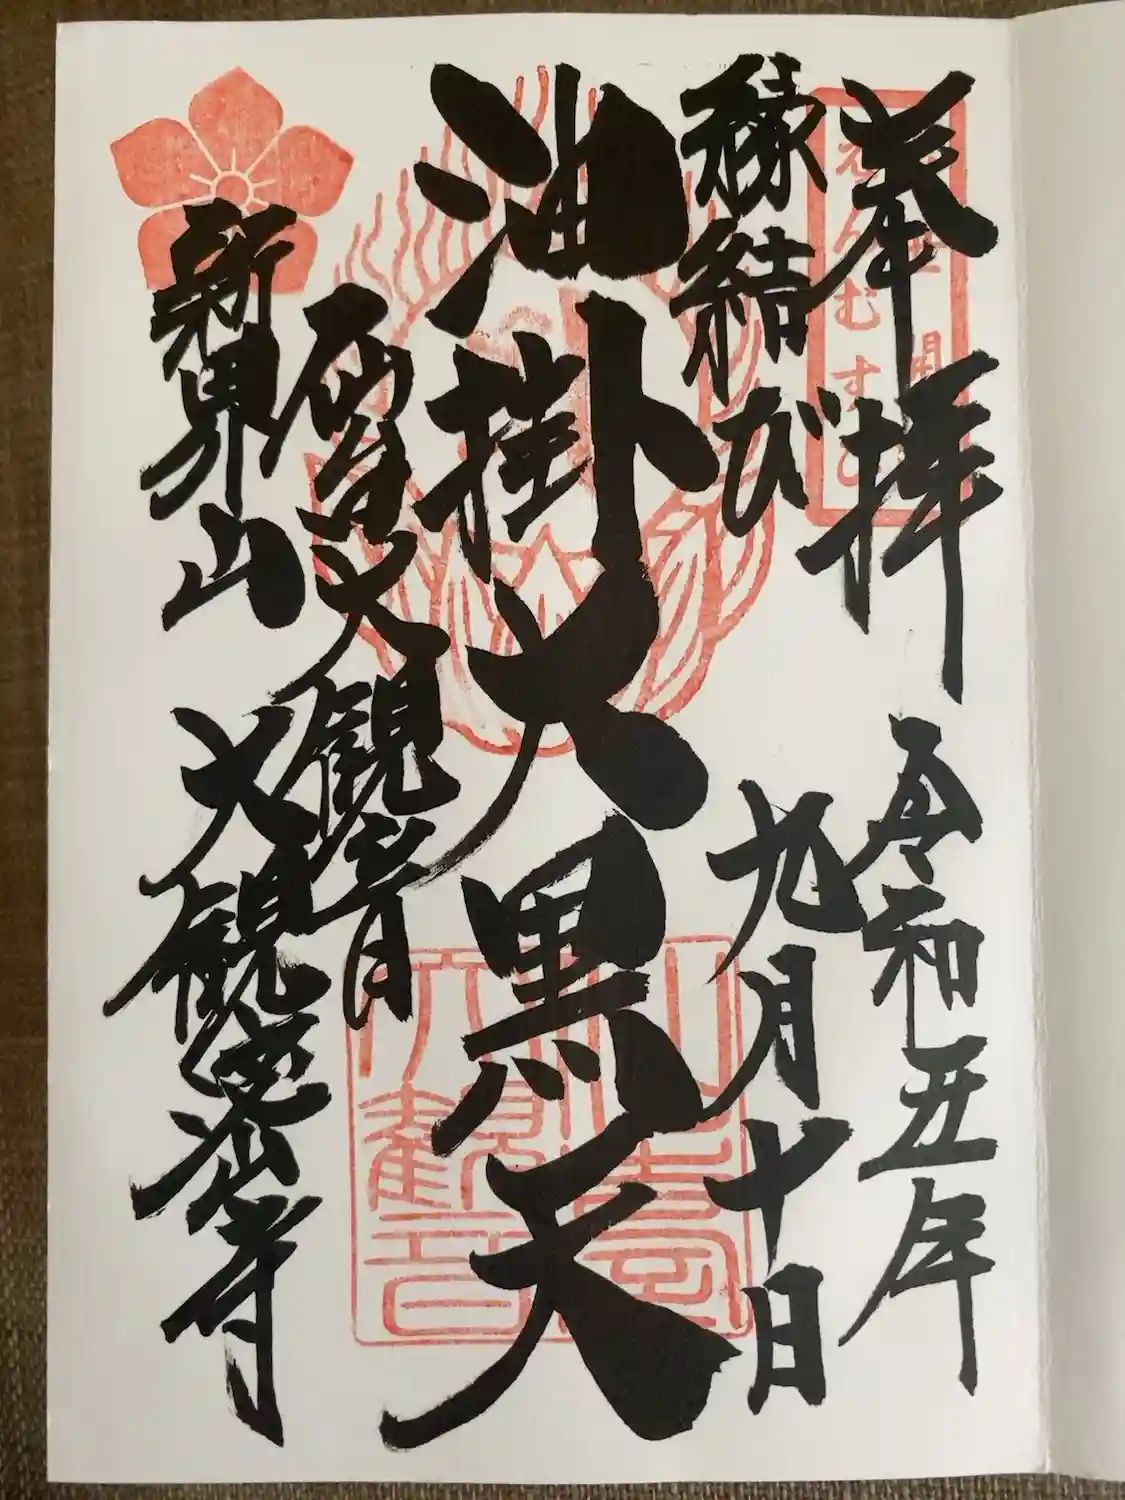 奉拝
令和五年
縁結び
九月十日
油掛大黒天
大観音
新界山
大観密寺
えんむすび
大観音